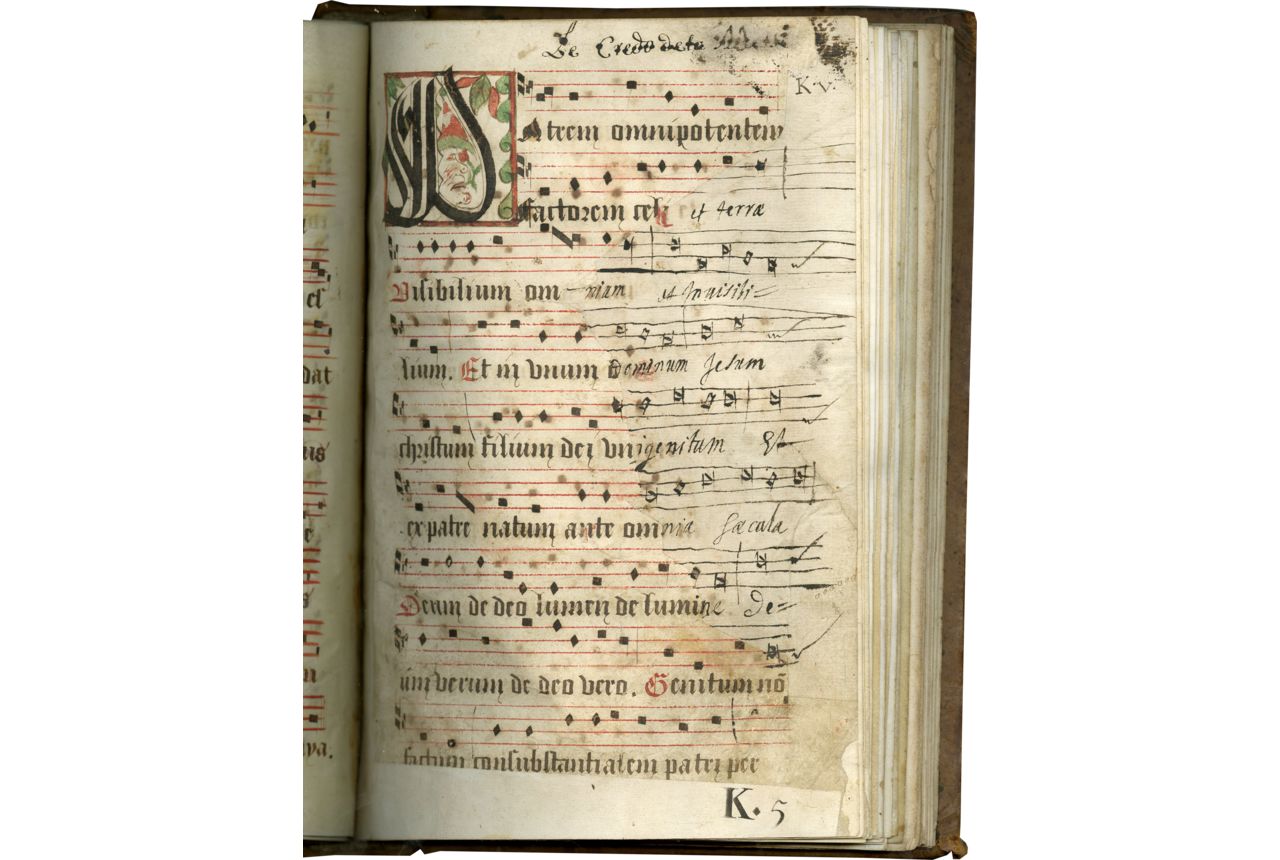 Le Credo de
K.v.
Patrem omnipotentem
factorem celi et terræ
Visibilium omniam et Invisibi=
lium. Et in vnum Dominum Jesum
christum filium dei vnigenitum Et
ex patre natum ante omnia sæcula
Deum de deo lumen de lumine De=
um verum de deo vero. Genitum nō
factum consubstantialem patri per
K. 5
el
dat
va.